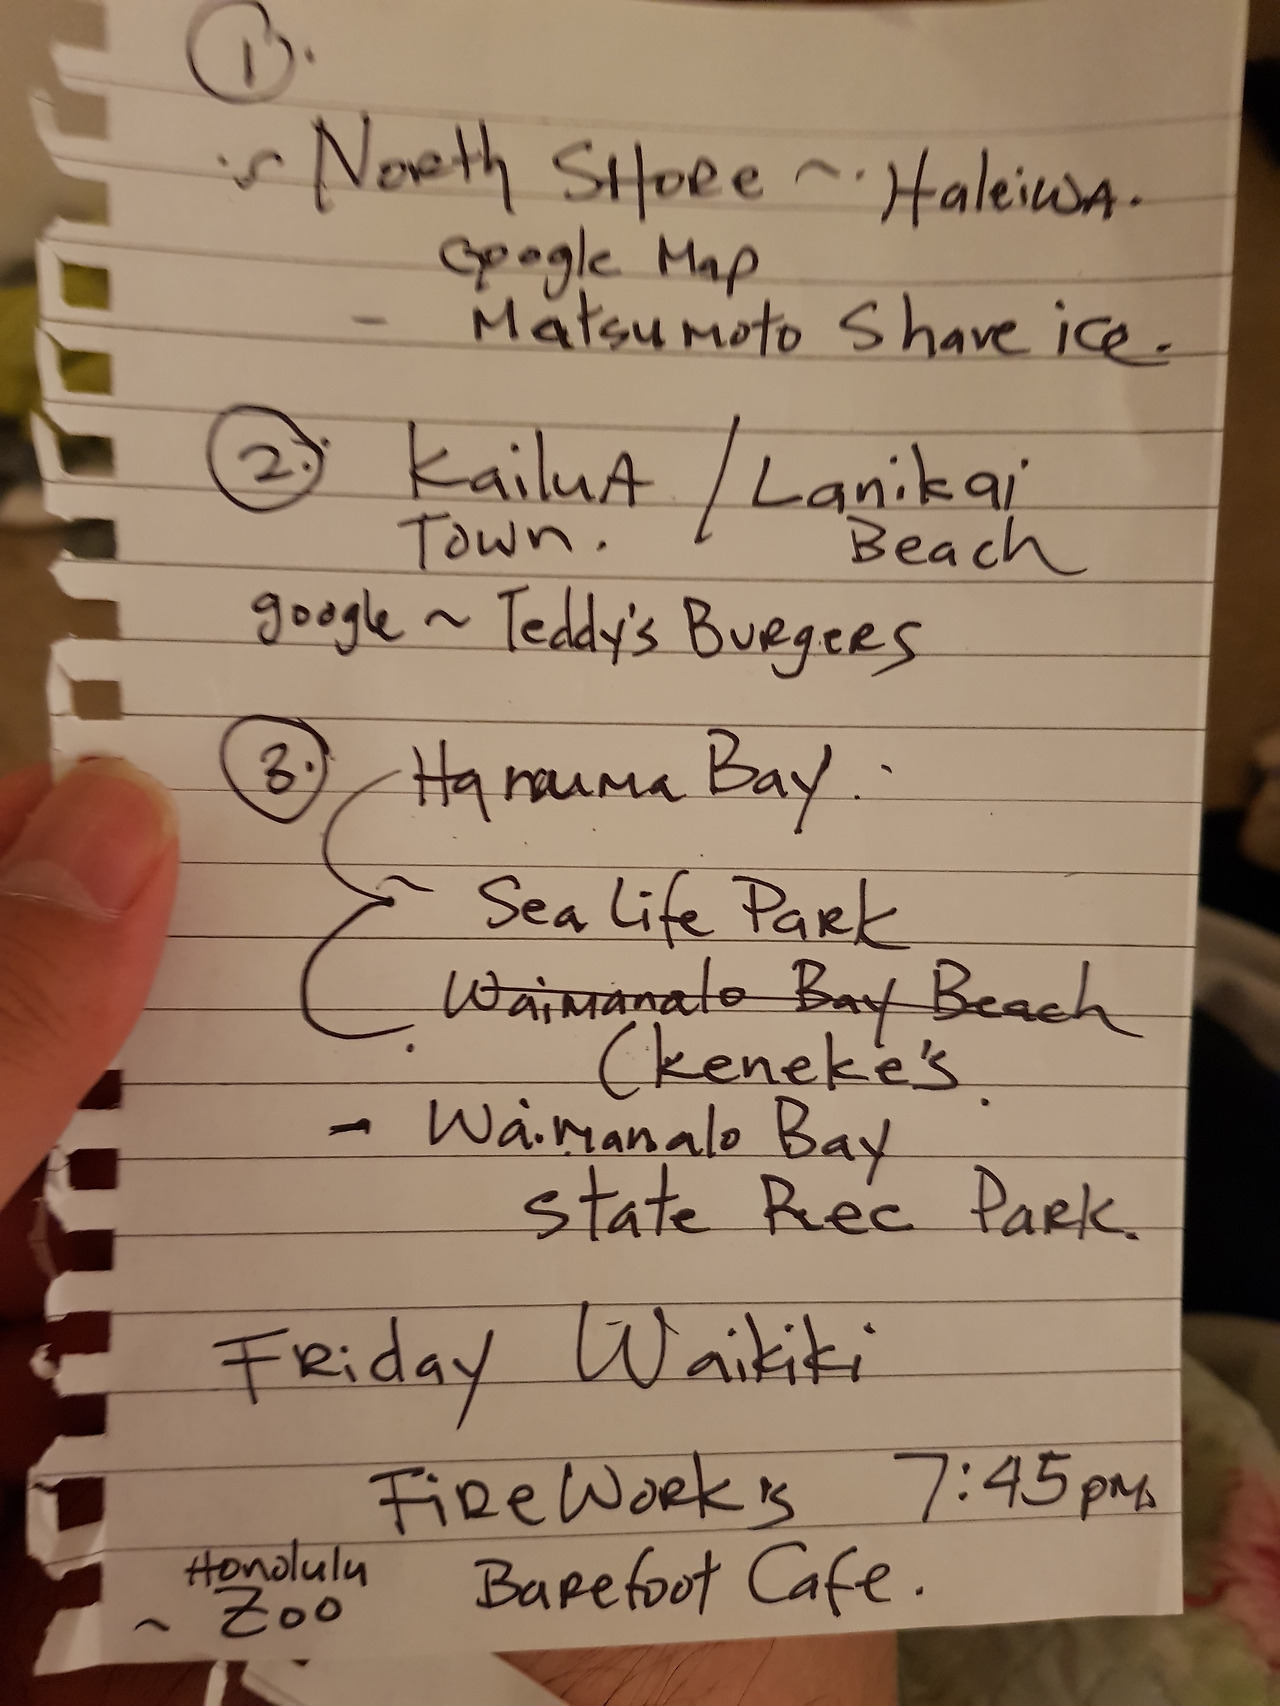 1.
North SHore ~ Haleiwa.
Google Map
- Matsumoto Shave ice.
2. KailuA / Lanikai
Town. Beach
google ~ Teddy's Burgers
3. Hanauma Bay :
~ Sea Life Park
Waimanalo Bay Beach
(keneke's.
- Waimanalo Bay
State Rec Park.
Friday Waikiki
FireWork's 7:45pm.
Honolulu
~ Zoo Barefoot Cafe.